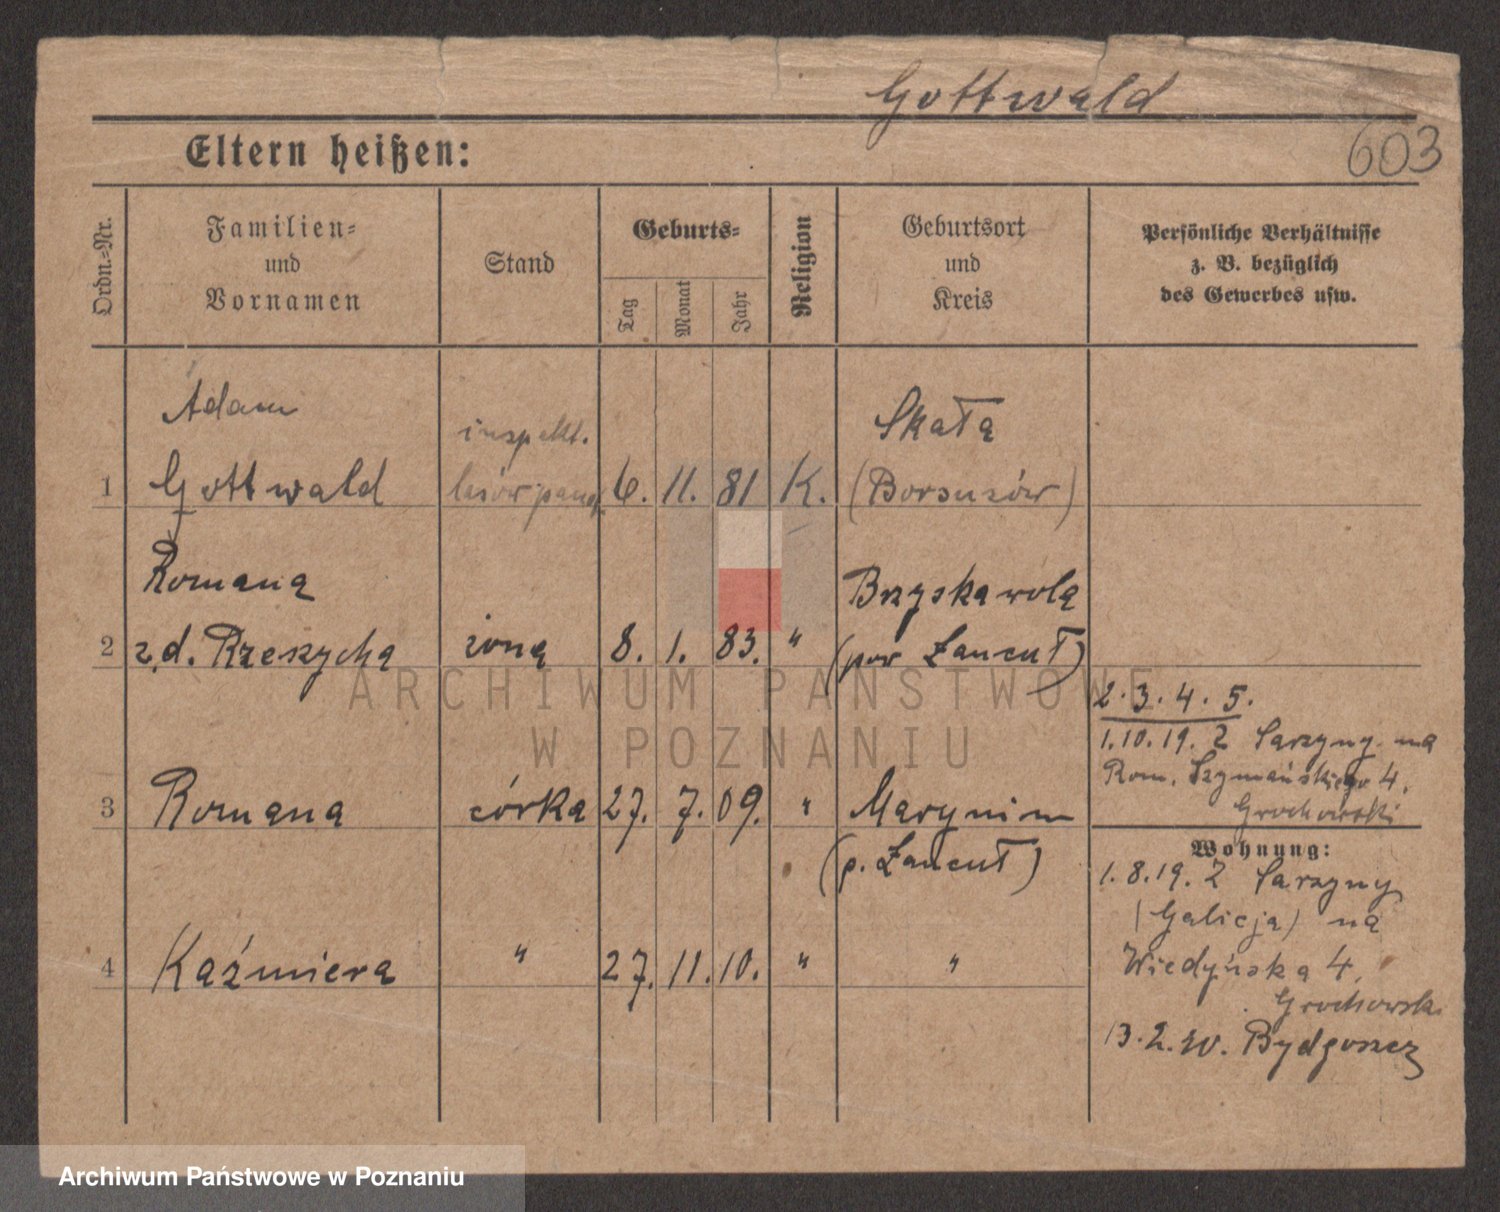 Gottwald
603
Eltern heißen:
Ordn.-Nr.
Familien-
und
Vornamen
Stand
Geburts-
Tag
Monat
Jahr
Religion
Geburtsort
und
Kreis
Persönliche Verhältnisse
z. B. bezüglich
des Gewerbes usw.
Adam
inspekt.
Skała
1 Gottwald lasów 6. 11. 81 K. (Borsuzów)
Romana
Brzyska wola
2 z d. Rzeszycha żona 8. 1. 83. " (pow Łancut)
2. 3. 4. 5.
1.10.19. Z Sarzyny na
Rom. Szymańskiego 4.
Grochowski
3 Romana córka 27. 7. 09. " Marynin
(p. Łancut)
Wohnung:
1.8.19. Z Sarzyny
(Galicja) na
4 Kaźmiera " 27. 11. 10. " "
Wiedyńska 4.
Grochowski
13.2.20. Bydgoszcz
ARCHIWUM PAŃSTWOWE
W POZNANIU
Archiwum Państwowe w Poznaniu